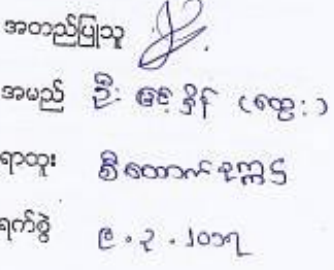 အတည်ပြုသူ
အမည် ဦး မြင့် စိန် (ထွေး)
ရာထူး စီထောက်ဥက္ကဌ
ရက်စွဲ ၉.၃.၂၀၁၇